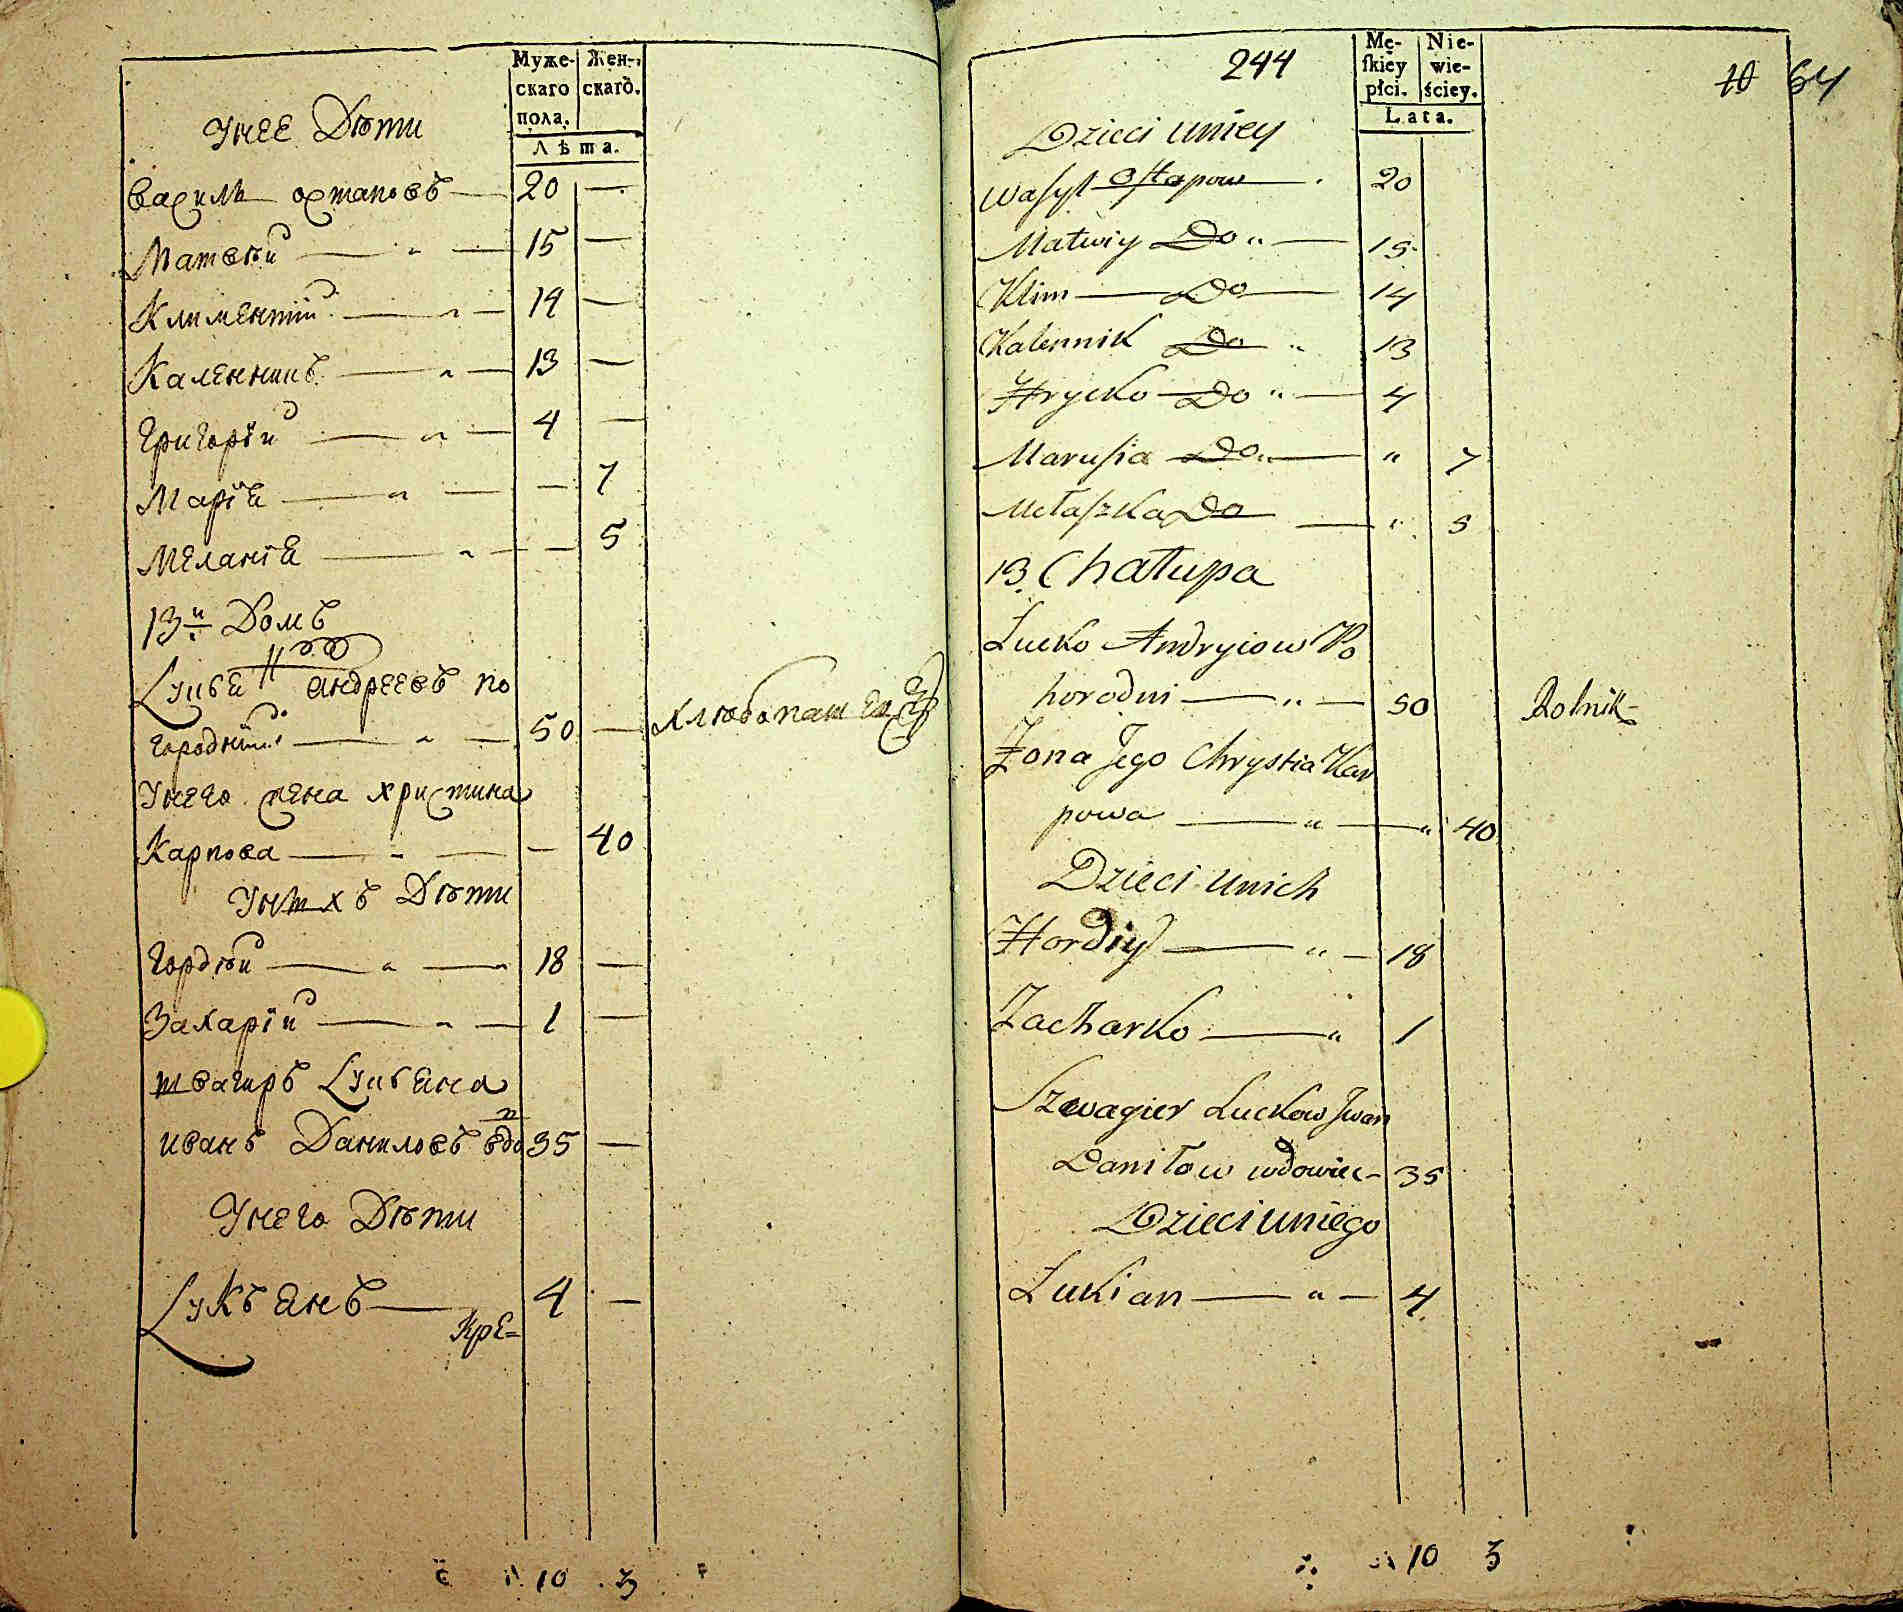 Муже-
скаго
пола.
Жен-
скаго.
Лѣта.
Унее Дѣти
Василь Остаповъ — 20 —
Матвѣй — " — 15 —
Климентий — " — 14 —
Каленникъ — " — 13 —
Григорій — " — 4 —
Марія — " — — 7
Меланія — " — — 5
13й Домъ
Луцья Андреевъ По
городній — " — 50 — Хлѣбопашецъ
Унего жена Христина
Карпова — " — — 40
Унихъ Дѣти
Гордѣй — " — 18 —
Захарій — " — 1 —
швагиръ Луцьяна
Иванъ Даниловъ вдо 35 —
Унего Дѣти
Лукъянъ — 4 —
Кре=
10 3
244
Mę-
ſkiey
płci.
Nie-
wie-
ściey.
Lata.
10 64
Dzieci uniey
Wasyl Ostapow — 20
Matwiy Do " — 15
Klim — Do — 14
Kalennik Do " 13
Hrycko Do " — 4
Marusia Do " — " 7
Mełaszka Do — " 5
13 Chałupa
Łucko Andryiow Po
horodni — " — 50 Rolnik
Żona Jego Chrystia Kar
powa — " — " 40
Dzieci unich
Hordiy — " — 18
Zacharko — " 1
Szwagier Łuckow Jwan
Daniłow wdowiec - 35
Dzieci uniego
Łukian — " — 4
10 3